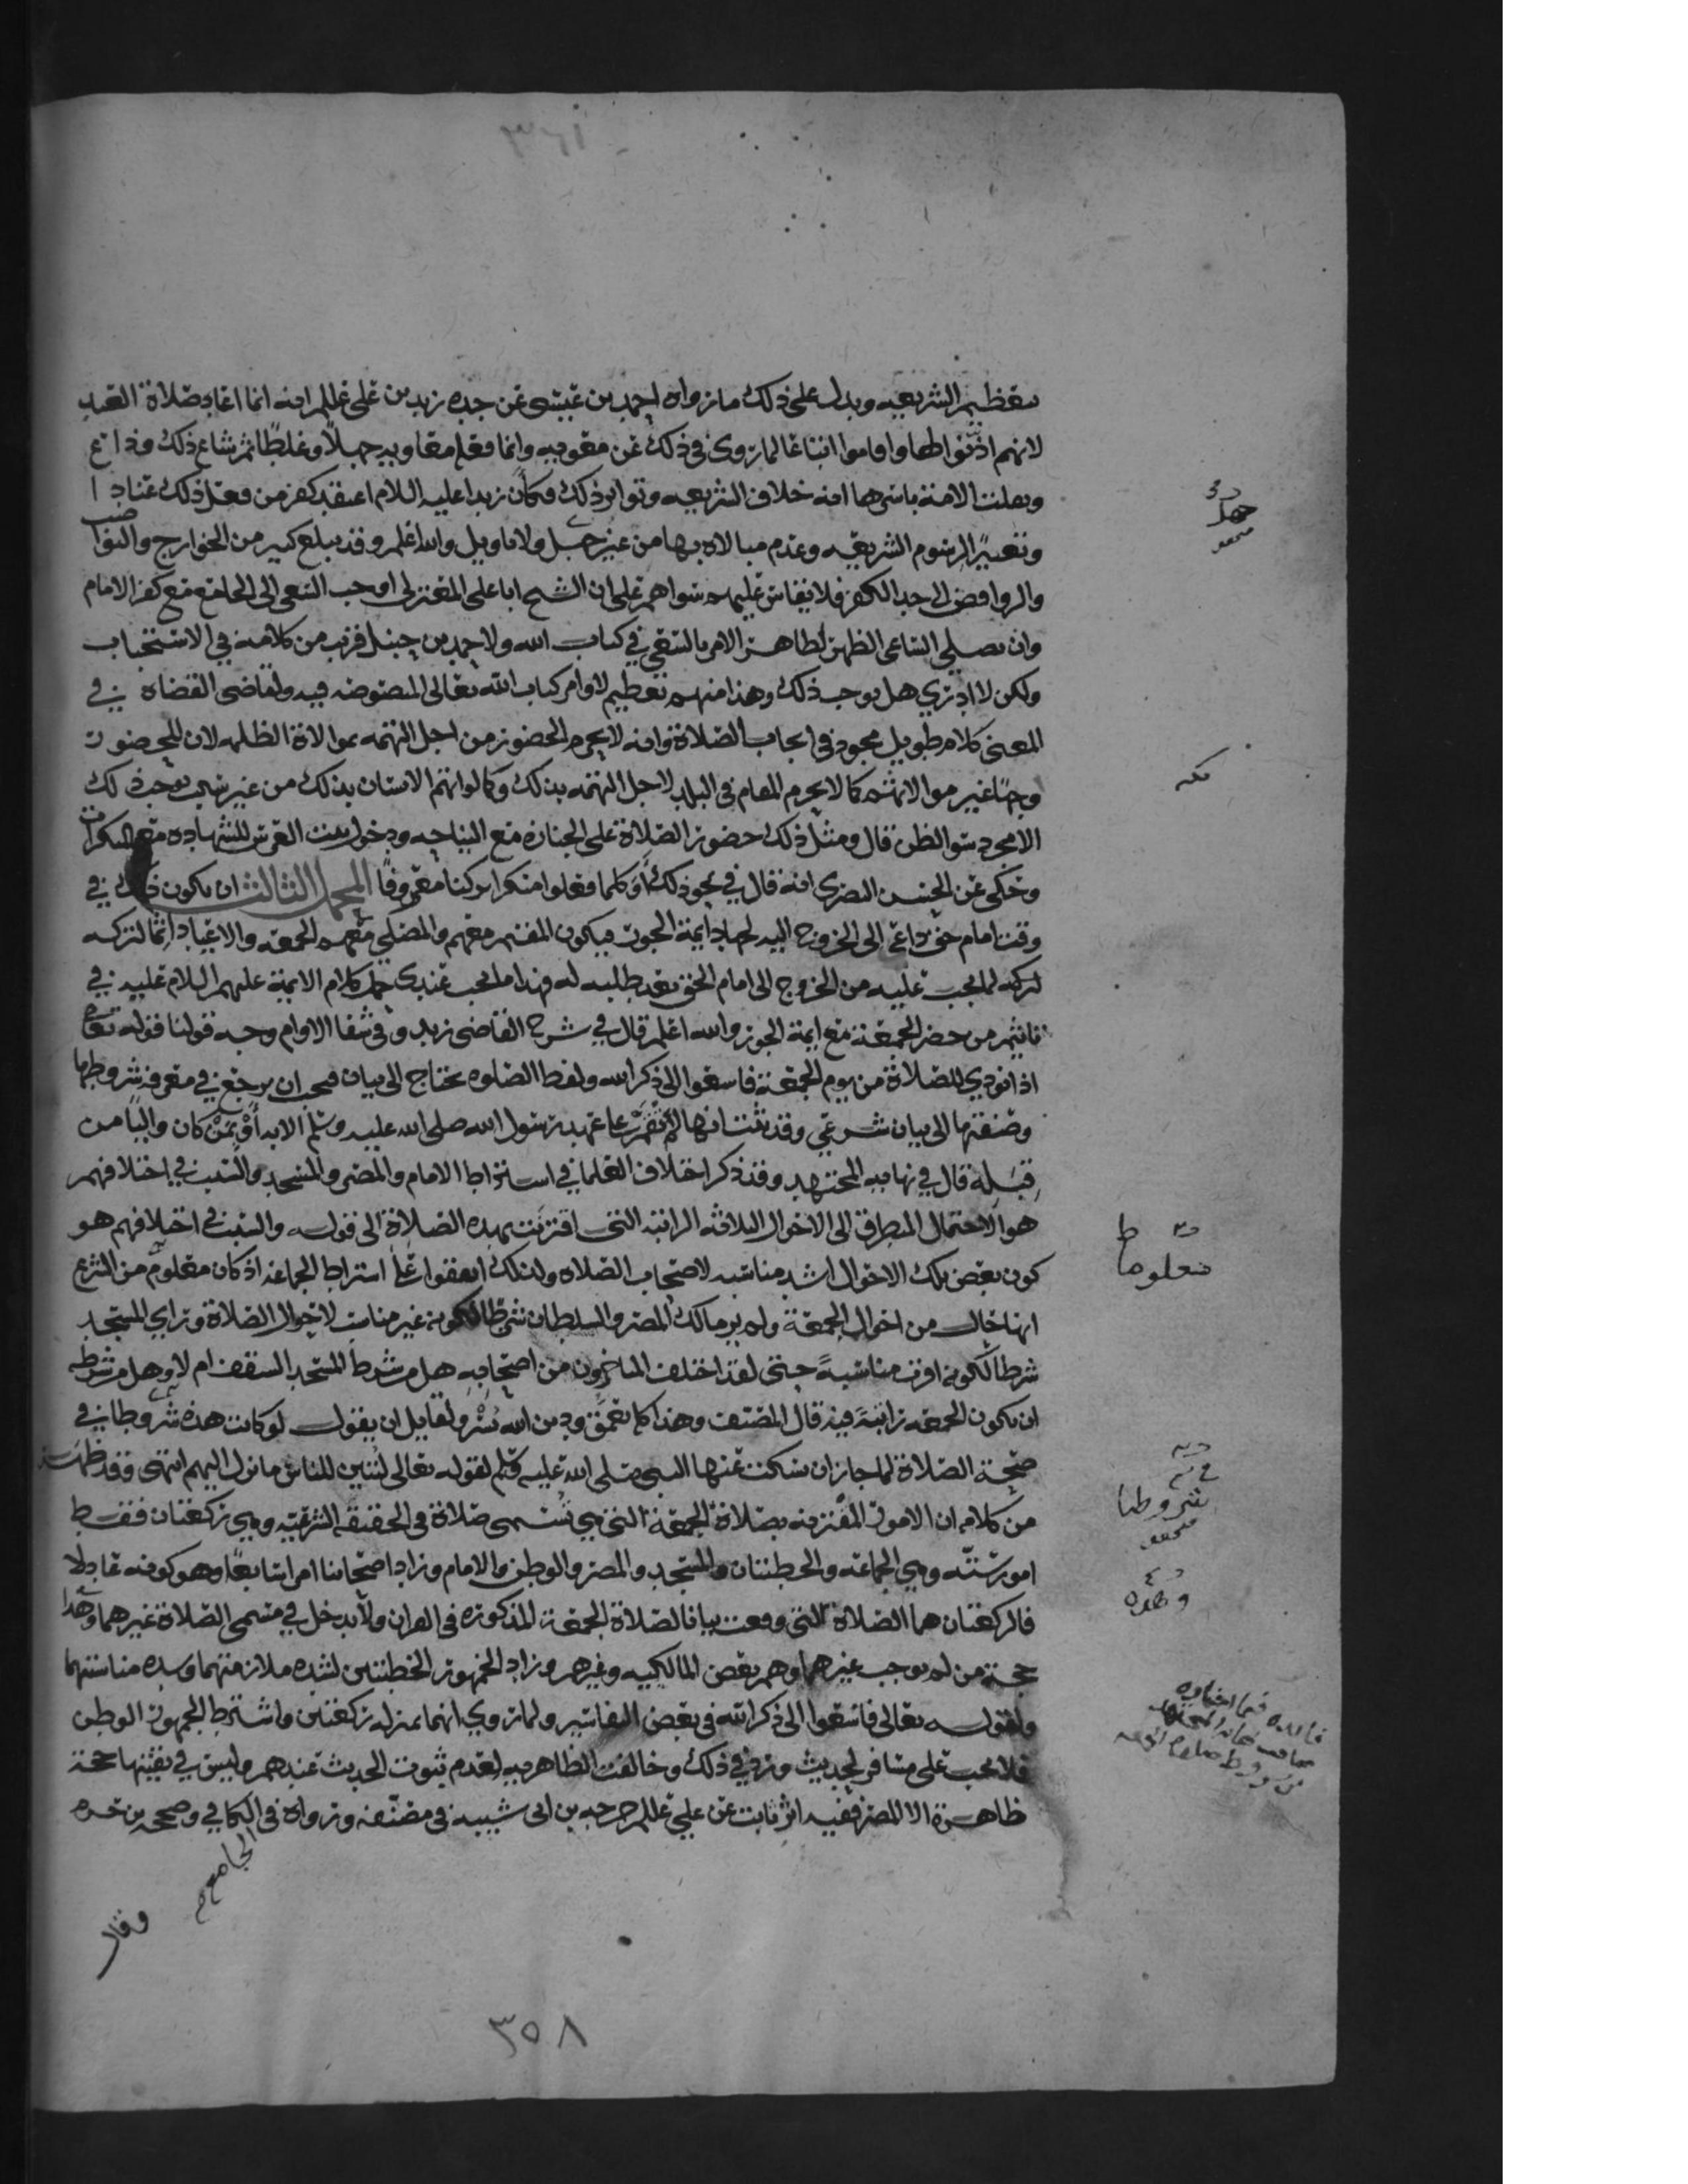 ٣٦١
تعظيم الشريعه ويدل على ذلك ما رواه احمد بن عيسى عن جده زيد بن علي عللم انه انما اعاد صلاة العيد
لانهم اذنوا لها واقاموا اتباعا لما روى في ذلك عن معويه وانما فعله معاويه جهلاً وغلطًا ثم شاع ذلك وذاع
وعلمت الامة باسرها انه خلاف الشريعه وتواتر ذلك وكأن زيدا عليه السلام اعتقد كفر من فعل ذلك عنادا
وتغييرًا لرسوم الشريعه وعدم مبالاه بها من غير جهل ولا تاويل والله اعلم وقد يبلغ كثير من الخوارج والنواصب
والروافض الى حد الكفر فلا يقاس عليهم سواهم على ان الشيخ ابا علي المعتزلي اوجب السعي الى الجامع مع كفر الامام
وان يصلي الساعي الظهر لظاهر الامر بالسعي في كتاب الله ولاحمد بن حنبل قريب من كلامه في الاستحباب
ولكن لا ادري هل يوجب ذلك وهذا منهم تعظيم لاوامر كتاب الله تعالى المنصوصه فيه ولقاضي القضاة في
المعنى كلام طويل مجود في ايجاب الصلاة وانه لا يحرم الحضور من اجل التهمه بموالاة الظلمه لان للحضور
وجهًا غير موالاتهم كما لا يحرم المقام في البلد لاجل التهمه بذلك وكما لو اتهم الانسان بذلك من غير شي يوجب ذلك
الا مجرد سو الظن قال ومثل ذلك حضور الصلاة على الجنازه مع النياحه ودخول بيت العرس للشهاده مع المنكرات
وحكى عن الحسن البصري انه قال في نحو ذلك أوَكلما فعلوا منكرا تركنا معروفًا المحمل الثالث ان يكون ذلك في
وقت امام حق داعٍ الى الخروج اليه لجهاد ايمة الجور فيكون المقيم معهم والمصلي معهم الجمعه والاعياد اثما لتركه
لتركه لما يجب عليه من الخروج الى امام الحق بعد طلبه له فهذا ما يجب عندي حمل كلام الايمة عليهم السلام عليه في
تاثيم من حضر الجمعة مع ايمة الجور والله اعلم قال في شرح القاضي زيد وفي شفا الاوام وجه قولنا قوله تعالى
اذا نودي للصلاة من يوم الجمعة فاسعوا الى ذكر الله ولفظ الصلوه يحتاج الى بيان فيجب ان يرجع في معرفة شروطها
وصفتها الى بيان شرعي وقد ثبت انها لم تقم على عهد رسول الله صلى الله عليه وسلم الا به أوْ بمن كان واليًا من
قبله قال في نهاية المجتهد وقد ذكر اختلاف العلما في اشتراط الامام والمصر والمسجد والسبب في اختلافهم
هو الاحتمال المتطرق الى الاحوال الثلاثه الراتبة التي اقترنت بهذه الصلاة الى قوله والسبب في اختلافهم هو
كون بعض تلك الاحوال اشد مناسبه لاصحاب الصلاه ولذلك اتفقوا على اشتراط الجماعة اذ كان معلوم من الشرع
انها حال من احوال الجمعة ولم ير مالك المصر والسلطان شرطا لكونه غير مناسب لاحوال الصلاة وراي المسجد
شرطا لكونه اقرب مناسبةً حتى لقد اختلف المتاخرون من اصحابه هل من شرط المسجد السقف ام لا وهل من شرطه
ان تكون الجمعه راتبةً فيه قال المصنف وهذا كله تعمُّق ودين الله يُسْر ولقايل ان يقول لو كانت هذه شروطا في
صحة الصلاة لما جاز ان يسكت عنها النبي صلى الله عليه وسلم لقوله تعالى لتبين للناس ما نزل اليهم انتهى وقد ظهرت
من كلامه ان الامور المقترنه بصلاة الجمعة التي هي تسمى صلاة في الحقيقة الشرعية وهي ركعتان فقط
امور ستّه وهي الجماعه والخطبتان والمسجد والمصر والوطن والامام وزاد اصحابنا امرا سابعًا وهو كونه عادلا
فالركعتان هما الصلاة التي وقعت بيانا لصلاة الجمعة المذكوره في القران ولا يدخل في مسمى الصلاة غيرهما وهذا
حجة من لم يوجب غيرهما وهم بعض المالكيه وغيرهم وزاد الجمهور الخطبتين لشده ملازمتهما وشده مناسبتهما
ولقوله تعالى فاسعوا الى ذكر الله في بعض التفاسير ولما روي انهما بمنزله ركعتين واشترط الجمهور الوطن
فلا تجب على مسافر لحديث وردَ في ذلك وخالفت الظاهريه لعدم ثبوت الحديث عندهم وليس في بقيتها حجة
ظاهرة الا المصر ففيه اثر ثابت عن علي عللم خرجه بن ابي شيبه في مصنّفه ورواه في الكافي وصححه بن حزم
الجامع
وقال
جهل
معلوما
شروطا
وهذه
٣٥٨